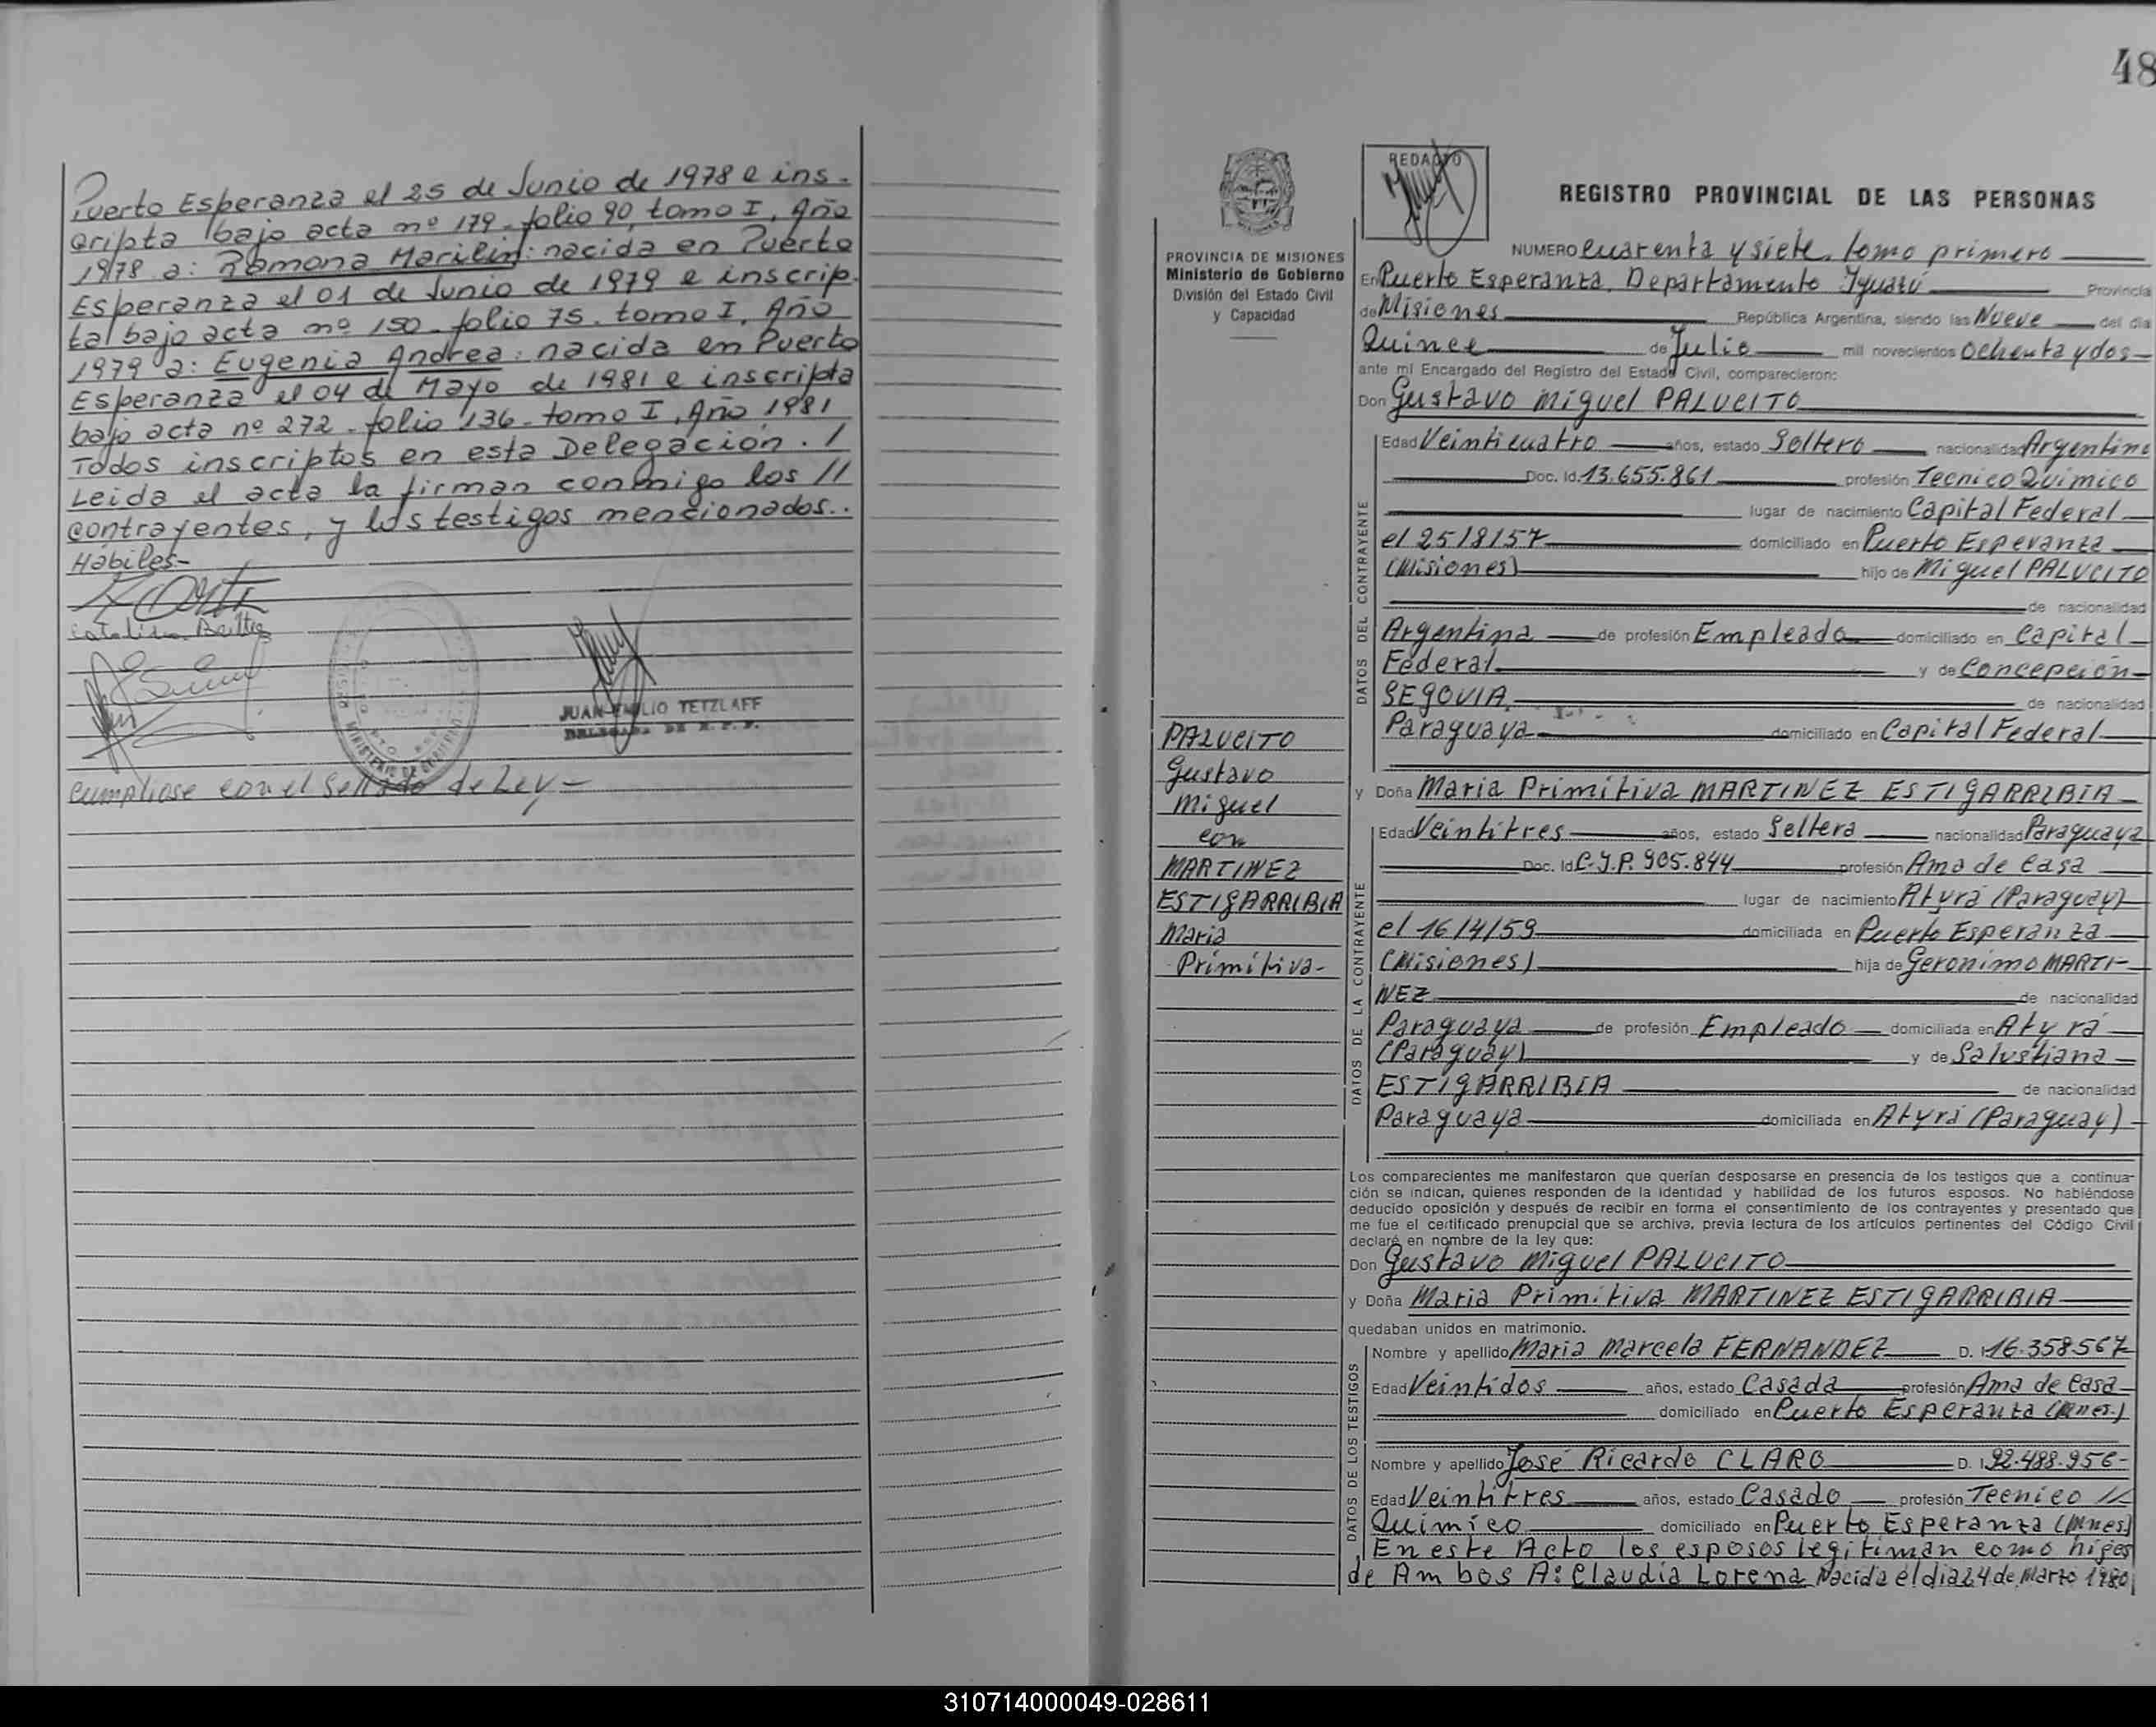 Puerto Esperanza el 25 de Junio de 1978 e ins-
cripta bajo acta nº 179 - folio 90, tomo I, Año
1978 a: Ramona Marilin: nacida en Puerto
Esperanza el 01 de Junio de 1979 e inscrip-
ta bajo acta nº 150 - folio 75 - tomo I, Año
1979 a: Eugenia Andrea: nacida en Puerto
Esperanza el 04 de Mayo de 1981 e inscripta
bajo acta nº 272 - folio 136 - tomo I, Año 1981
Todos inscriptos en esta Delegación. /
Leida el acta la firman conmigo los //
contrayentes, y los testigos mencionados..
Hábiles-
JUAN EMILIO TETZLAFF
DELEGADO DE R.P.P.
MINISTERIO DE GOBIERNO
Cumpliose con el Sellado de Ley-
48
PROVINCIA DE MISIONES
Ministerio de Gobierno
División del Estado Civil
y Capacidad
PALUCITO
Gustavo
Miguel
con
MARTINEZ
ESTIGARRIBIA
Maria
Primitiva-
REDACTO
REGISTRO PROVINCIAL DE LAS PERSONAS
NUMERO Cuarenta y siete, tomo primero
En Puerto Esperanza, Departamento Iguazú Provincia
de Misiones República Argentina, siendo las Nueve del día
Quince de Julio mil novecientos Ochenta y dos-
ante mí Encargado del Registro del Estado Civil, comparecieron:
Don Gustavo Miguel PALUCITO
DATOS DEL CONTRAYENTE
Edad Veinticuatro años, estado Soltero nacionalidad Argentino
Doc. Id. 13.655.861 profesión Tecnico Quimico
lugar de nacimiento Capital Federal
el 25/8/57 domiciliado en Puerto Esperanza
(Misiones) hijo de Miguel PALUCITO
de nacionalidad
Argentina de profesión Empleado domiciliado en Capital
Federal y de Concepción
SEGOVIA, de nacionalidad
Paraguaya domiciliado en Capital Federal
y Doña Maria Primitiva MARTINEZ ESTIGARRIBIA
DATOS DE LA CONTRAYENTE
Edad Veintitres años, estado Soltera nacionalidad Paraguaya
Doc. Id C.I.P. 905.844 profesión Ama de Casa
lugar de nacimiento Atyrá (Paraguay)
el 16/4/59 domiciliada en Puerto Esperanza
(Misiones) hija de Geronimo MARTI-
NEZ de nacionalidad
Paraguaya de profesión Empleado domiciliada en Atyrá
(Paraguay) y de Salustiana
ESTIGARRIBIA de nacionalidad
Paraguaya domiciliada en Atyrá (Paraguay)
Los comparecientes me manifestaron que querían desposarse en presencia de los testigos que a continua-
ción se indican, quienes responden de la identidad y habilidad de los futuros esposos. No habiéndose
deducido oposición y después de recibir en forma el consentimiento de los contrayentes y presentado que
me fue el certificado prenupcial que se archiva, previa lectura de los artículos pertinentes del Código Civil
declaré en nombre de la ley que:
Don Gustavo Miguel PALUCITO
y Doña Maria Primitiva MARTINEZ ESTIGARRIBIA
quedaban unidos en matrimonio.
DATOS DE LOS TESTIGOS
Nombre y apellido Maria Marcela FERNANDEZ D. I 16.358.567
Edad Veintidos años, estado Casada profesión Ama de Casa
domiciliado en Puerto Esperanza (Mnes.)
Nombre y apellido José Ricardo CLARO D. I 92.488.956-
Edad Veintitres años, estado Casado profesión Tecnico //
Quimico domiciliado en Puerto Esperanza (Mnes)
En este Acto los esposos legitiman como hijos
de Ambos A: Claudia Lorena Nacida el dia 24 de Marzo 1980,
310714000049-028611